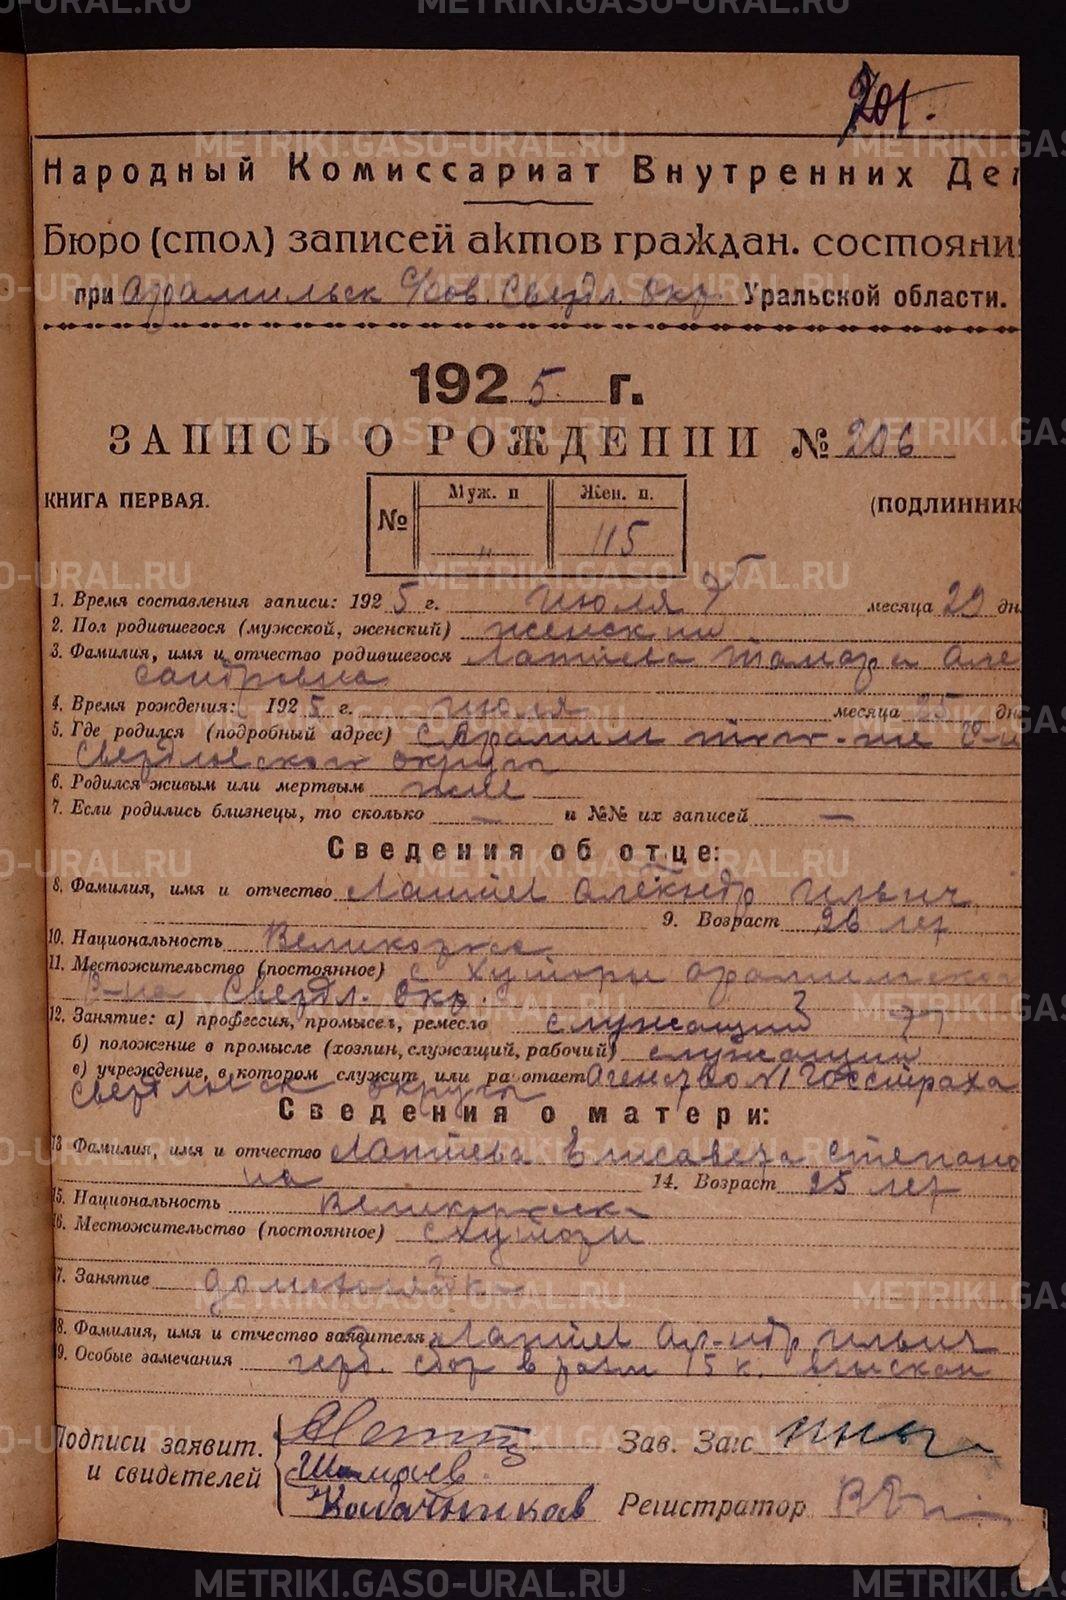 201.
Народный Комиссариат Внутренних Дел
Бюро (стол) записей актов граждан. состояния
при Арамильск с/сов. Свердл. Окр. Уральской области.
1925 г.
ЗАПИСЬ О РОЖДЕНИИ № 206
КНИГА ПЕРВАЯ. (ПОДЛИННИК
№ Муж. п Жен. п.
" 115
1. Время составления записи: 1925 г. июля месяца 29 дн
2. Пол родившегося (мужской, женский) женский
3. Фамилия, имя и отчество родившегося Лаптева Тамара Але
сандровна
4. Время рождения: 1925 г. июля месяца 25 дн
5. Где родился (подробный адрес) с Арамил р-н
Свердловского округа
6. Родился живым или мертвым
7. Если родились близнецы, то сколько — и №№ их записей —
Сведения об отце:
8. Фамилия, имя и отчество Лаптев Александр Ильич
9. Возраст 26 лет
10. Национальность Великоросс
11. Местожительство (постоянное) с Хуторы Арамильско
р-на Свердл. окр.
12. Занятие: а) профессия, промысел, ремесло служащий
б) положение в промысле (хозяин, служащий, рабочий) служащий
в) учреждение, в котором служит или ра отает Агенство №1 Госстраха
Свердловск округа
Сведения о матери:
13 Фамилия, имя и отчество Лаптева Елисавета Степано
на 14. Возраст 25 лет
15. Национальность великоросска
16. Местожительство (постоянное) с Хуторы
7. Занятие домохозяйка
8. Фамилия, имя и отчество заявителя Лаптев Ал-ндр Ильич
9. Особые замечания герб. сбор в разм 15 к. взыскан
Подписи заявит. Зав. Загс
и свидетелей Шамаев.
Кабатчиков Регистратор
METRIKI.GASO-URAL.RU